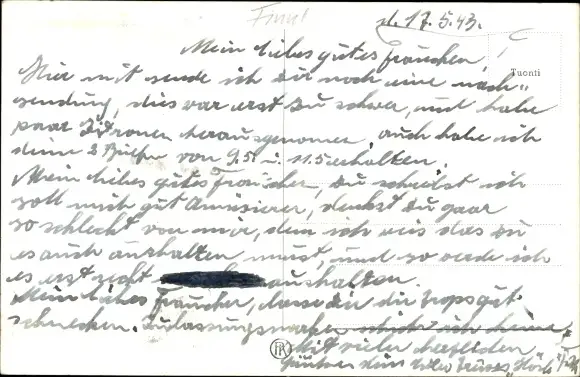 Finnl
d. 17.5.43.
Mein liebes gutes Frauchen!
Tuonti
Hier mit sende ich Dir noch eine nach-
sendung, dies war erst zu schwer, und habe
paar Zitronen herausgenommen, auch habe ich
deine 2 Briefe von 9.5. u. 11.5 erhalten.
Mein liebes gutes Frauchen, Du schreibst ich
soll mich gut Amusieren, denkst Du gar
so schlecht von mir, den ich weis das Du
es auch aushalten must, und so werde ich
es erst recht aushalten.
Mein liebes Frauchen, lasse dir die Drops gut
schmecken. Zulassungsmarken schick ich keine,
Mit vielen herzlichen
dein